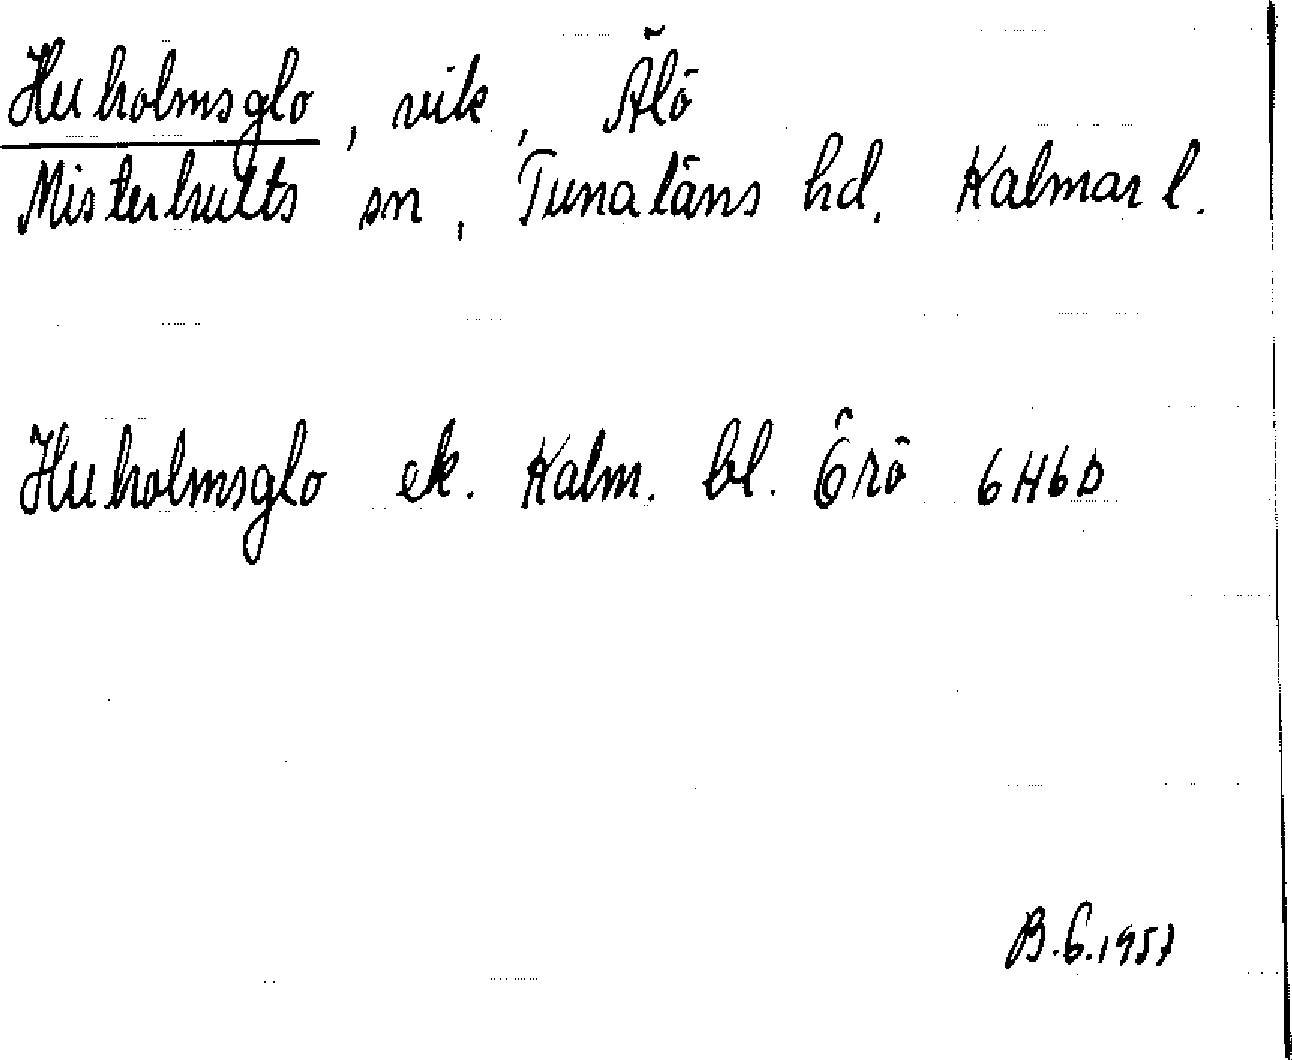 Huholmsglo, vik, Älö
Misterhults sn, Tunaläns hd, Kalmar l.
Huholmsglo ek. Kalm. bl. Örö 6H6D
B.G.1957